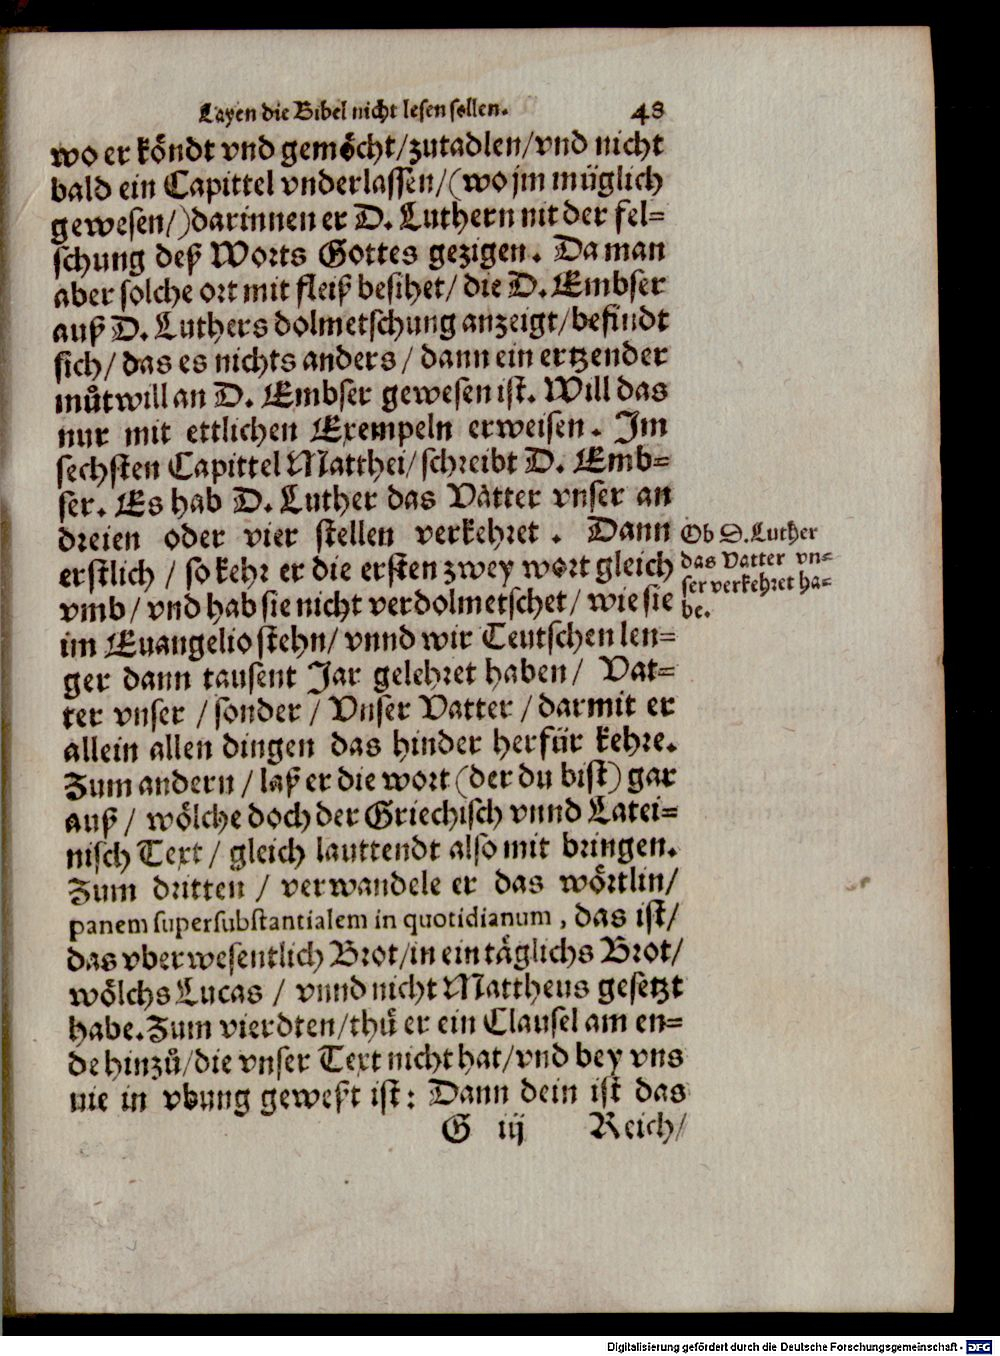 Layen die Bibel nicht lesen sollen. 48
wo er köndt vnd gemöcht/zutadlen/vnd nicht
bald ein Capittel vnderlassen/(wo jm müglich
gewesen/)darinnen er D. Luthern nit der fel=
schung deß Worts Gottes gezigen. Da man
aber solche ort mit fleiß besihet/ die D. Embser
auß D. Luthers dolmetschung anzeigt/befindt
sich/ das es nichts anders/ dann ein ertzender
můtwill an D. Embser gewesen ist. Will das
nur mit ettlichen Exempeln erweisen. Im
sechsten Capittel Matthei/ schreibt D. Emb=
ser. Es hab D. Luther das Vatter vnser an
dreien oder vier stellen verkehret. Dann
erstlich / so kehr er die ersten zwey wort gleich
vmb/ vnd hab sie nicht verdolmetschet/ wie sie
im Euangelio stehn/ vnnd wir Teutschen len=
ger dann tausent Jar gelehret haben/ Vat=
ter vnser / sonder / Vnser Vatter / darmit er
allein allen dingen das hinder herfür kehre.
Zum andern / laß er die wort (der du bist) gar
auß / wölche doch der Griechisch vnnd Latei=
nisch Text / gleich lauttendt also mit bringen.
Zum dritten / verwandele er das wörtlin/
panem supersubstantialem in quotidianum, das ist/
das vberwesentlich Brot/in ein täglichs Brot/
wölchs Lucas / vnnd nicht Mattheus gesetzt
habe. Zum vierdten/thů er ein Clausel am en=
de hinzů/die vnser Text nicht hat/vnd bey vns
nie in vbung gewest ist: Dann dein ist das
G iij Reich/
Ob D. Luther
das Vatter vn=
ser verkehret ha=
be.
Digitalisierung gefördert durch die Deutsche Forschungsgemeinschaft - DFG